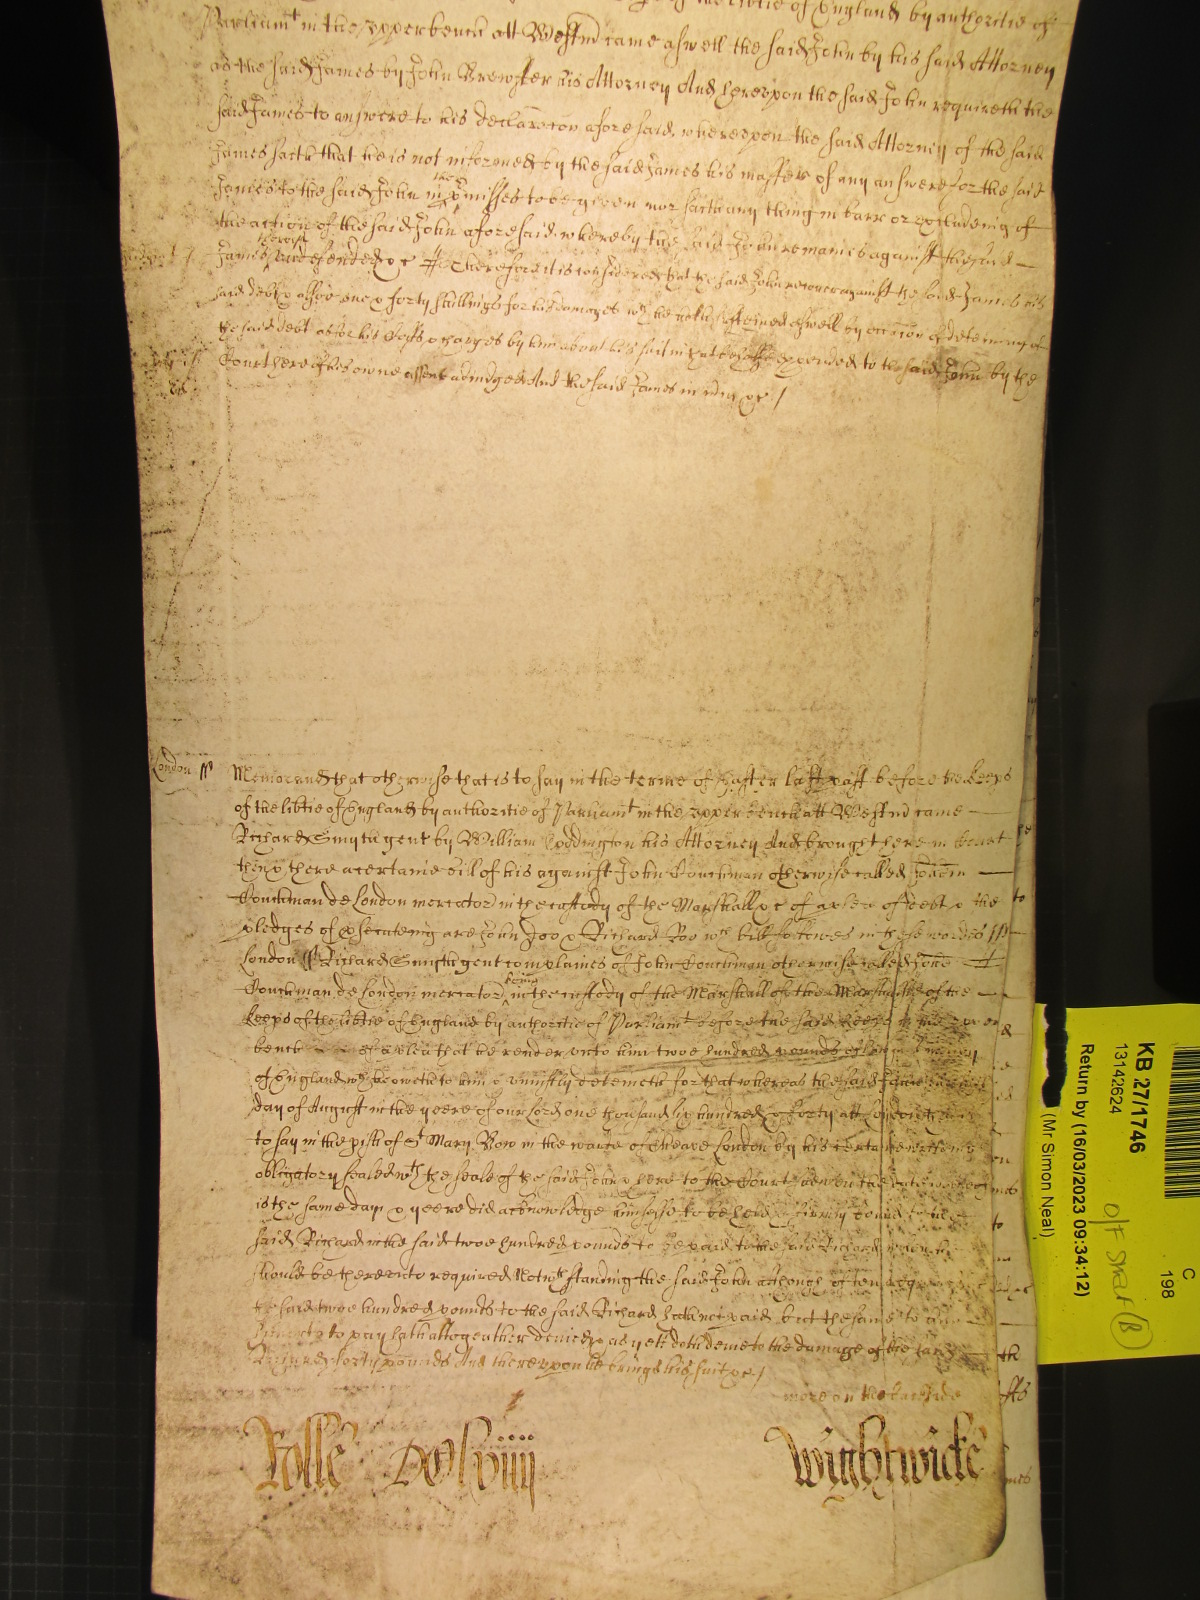 libtie of England by authoritie of
Parliamt in the upper bench att Westmr came aswell the said John by his said Attorney
as the said James by John Brewster his Attorney And hereupon the said John requireth the
said James to answere to his declaracon aforesaid whereupon the said Attorney of the said
James saith that he is not informed by the said James his master of any answere for the said
James to the said John in the pmisses to be given nor saith any thing in barr or excludeing of
the action of the said John aforesaid whereby the said John remaines against the said
James therein undefended &c Therefore it is considered that the said John recover against the said James his
said debt & alsoe forty shillings for his damages wch he hath susteined aswell by occacon of deteineing of
the said debt as for his Costs & charges by him about his suit in that behalfe expended to the said John by the
Court here of his owne assent adiudged And the said James in mercy &c /
London ss
Memorand that otherwise that is to say in the terme of Easter last past before the keeps
of the libtie of England by authoritie of Parliamt in the upper bench att Westmr came
Richard Smyth gent by William Coddington his Attorney And brought here in Court
then & there a certaine bill of his against John Couchman otherwise called John
Couchman de London mercator in the custody of the Marshall &c of a plea of debt & the
pledges of psecuteing are John Doo & Richard Roo wch bill followes in these wordes ss
London ss Richard Smyth gent complaines of John Couchman otherwise called John
Couchman de London mercator being in the custody of the Marshall of the Marshalsie of the
keeps of the libtie of England by authoritie of Parliamt before the said keeps in the upper
bench of a plea that he render unto him twoe hundred pounds of lawfull money
of England wch he oweth to him & uniustly deteineth for that whereas the said John
day of August in the yeere of our lord one thousand six hundred & forty att London that is
to say in the pish of St Mary Bow in the warde of Cheape London by his certaine writeing
obligatory sealed wth the seale of the said John & here to the Court shewen the date whereof
is the same day & yeere did acknowledge himselfe to be held & firmely bound to the
said Richard in the said twoe hundred pounds to be paid to the said Richard when he
should be thereunto required Notwthstanding the said John although often requested
the said twoe hundred pounds to the said Richard hath not paid but the same to him
hitherto to pay hath altogeather denied & as yett doth denie to the damage of the said
Richard forty pounds And thereupon he brings his suit &c /
more on the backside
Rolle Wightwicke
KB 27/1746
13142624
Return by (16/03/2023 09:34:12)
(Mr Simon Neal)
C
198